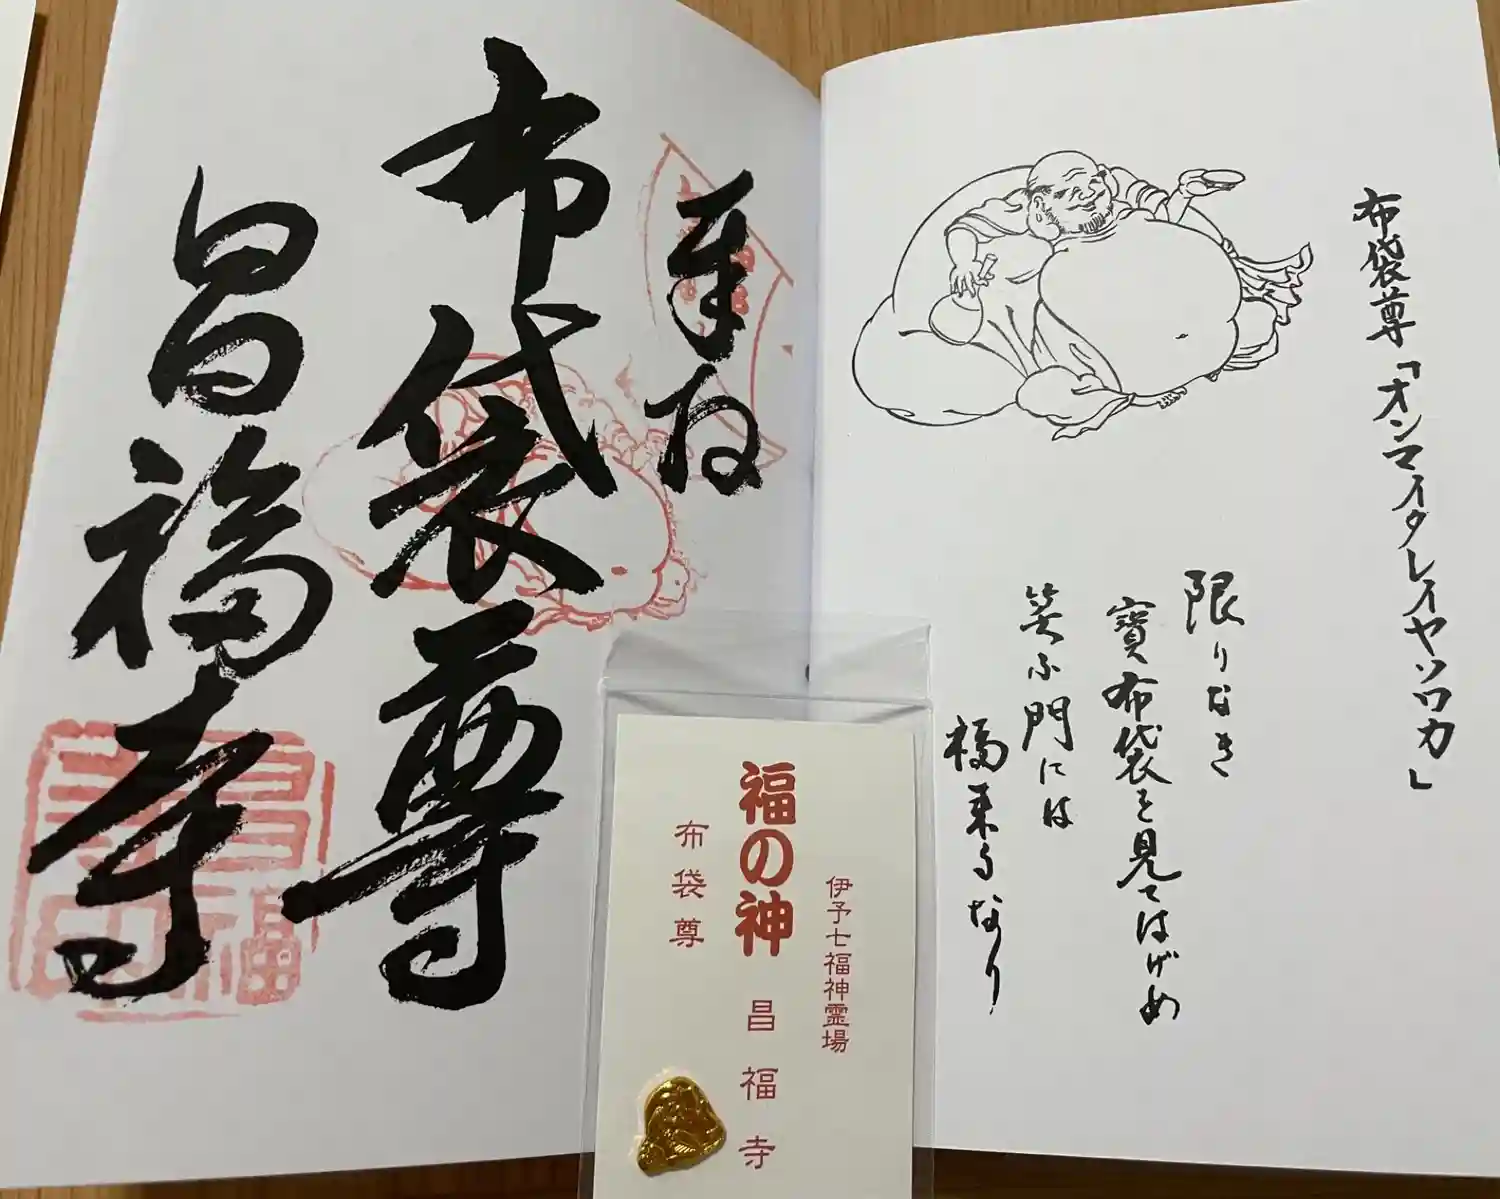 布袋尊「オンマイタレイヤソワカ」
限りなき
寶布袋を見てはげめ
笑ふ門には
福来るなり
奉拝
布袋尊
昌福寺
伊予七福神霊場
福の神 昌福寺
布袋尊